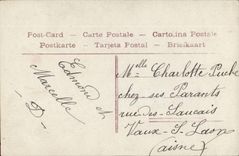 Post-Card - Carte Postale - Cartolina Postale
Postkarte - Tarjeta Postal - Briefkaart
Edmond et
Marcelle
D
Melle Charlotte
chez ses Parents
rue des
Vaux-S-Laon
(aisne)